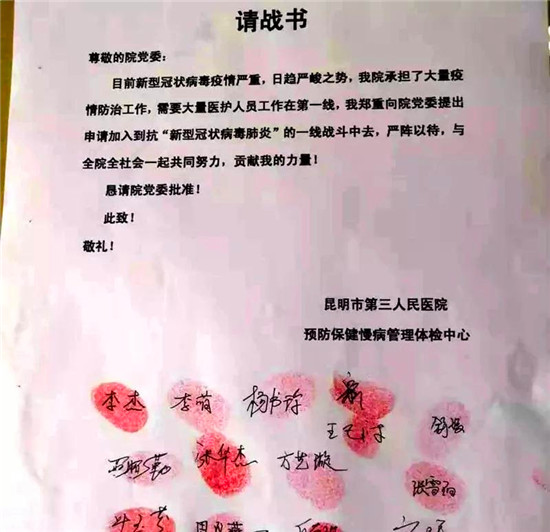 请战书
尊敬的院党委：
目前新型冠状病毒疫情严重，日趋严峻之势，我院承担了大量疫
情防治工作，需要大量医护人员工作在第一线，我郑重向院党委提出
申请加入到抗“新型冠状病毒肺炎”的一线战斗中去，严阵以待，与
全院全社会一起共同努力，贡献我的力量！
恳请院党委批准！
此致！
敬礼！
昆明市第三人民医院
预防保健慢病管理体检中心
李杰 李萌
张华杰 方艺漩